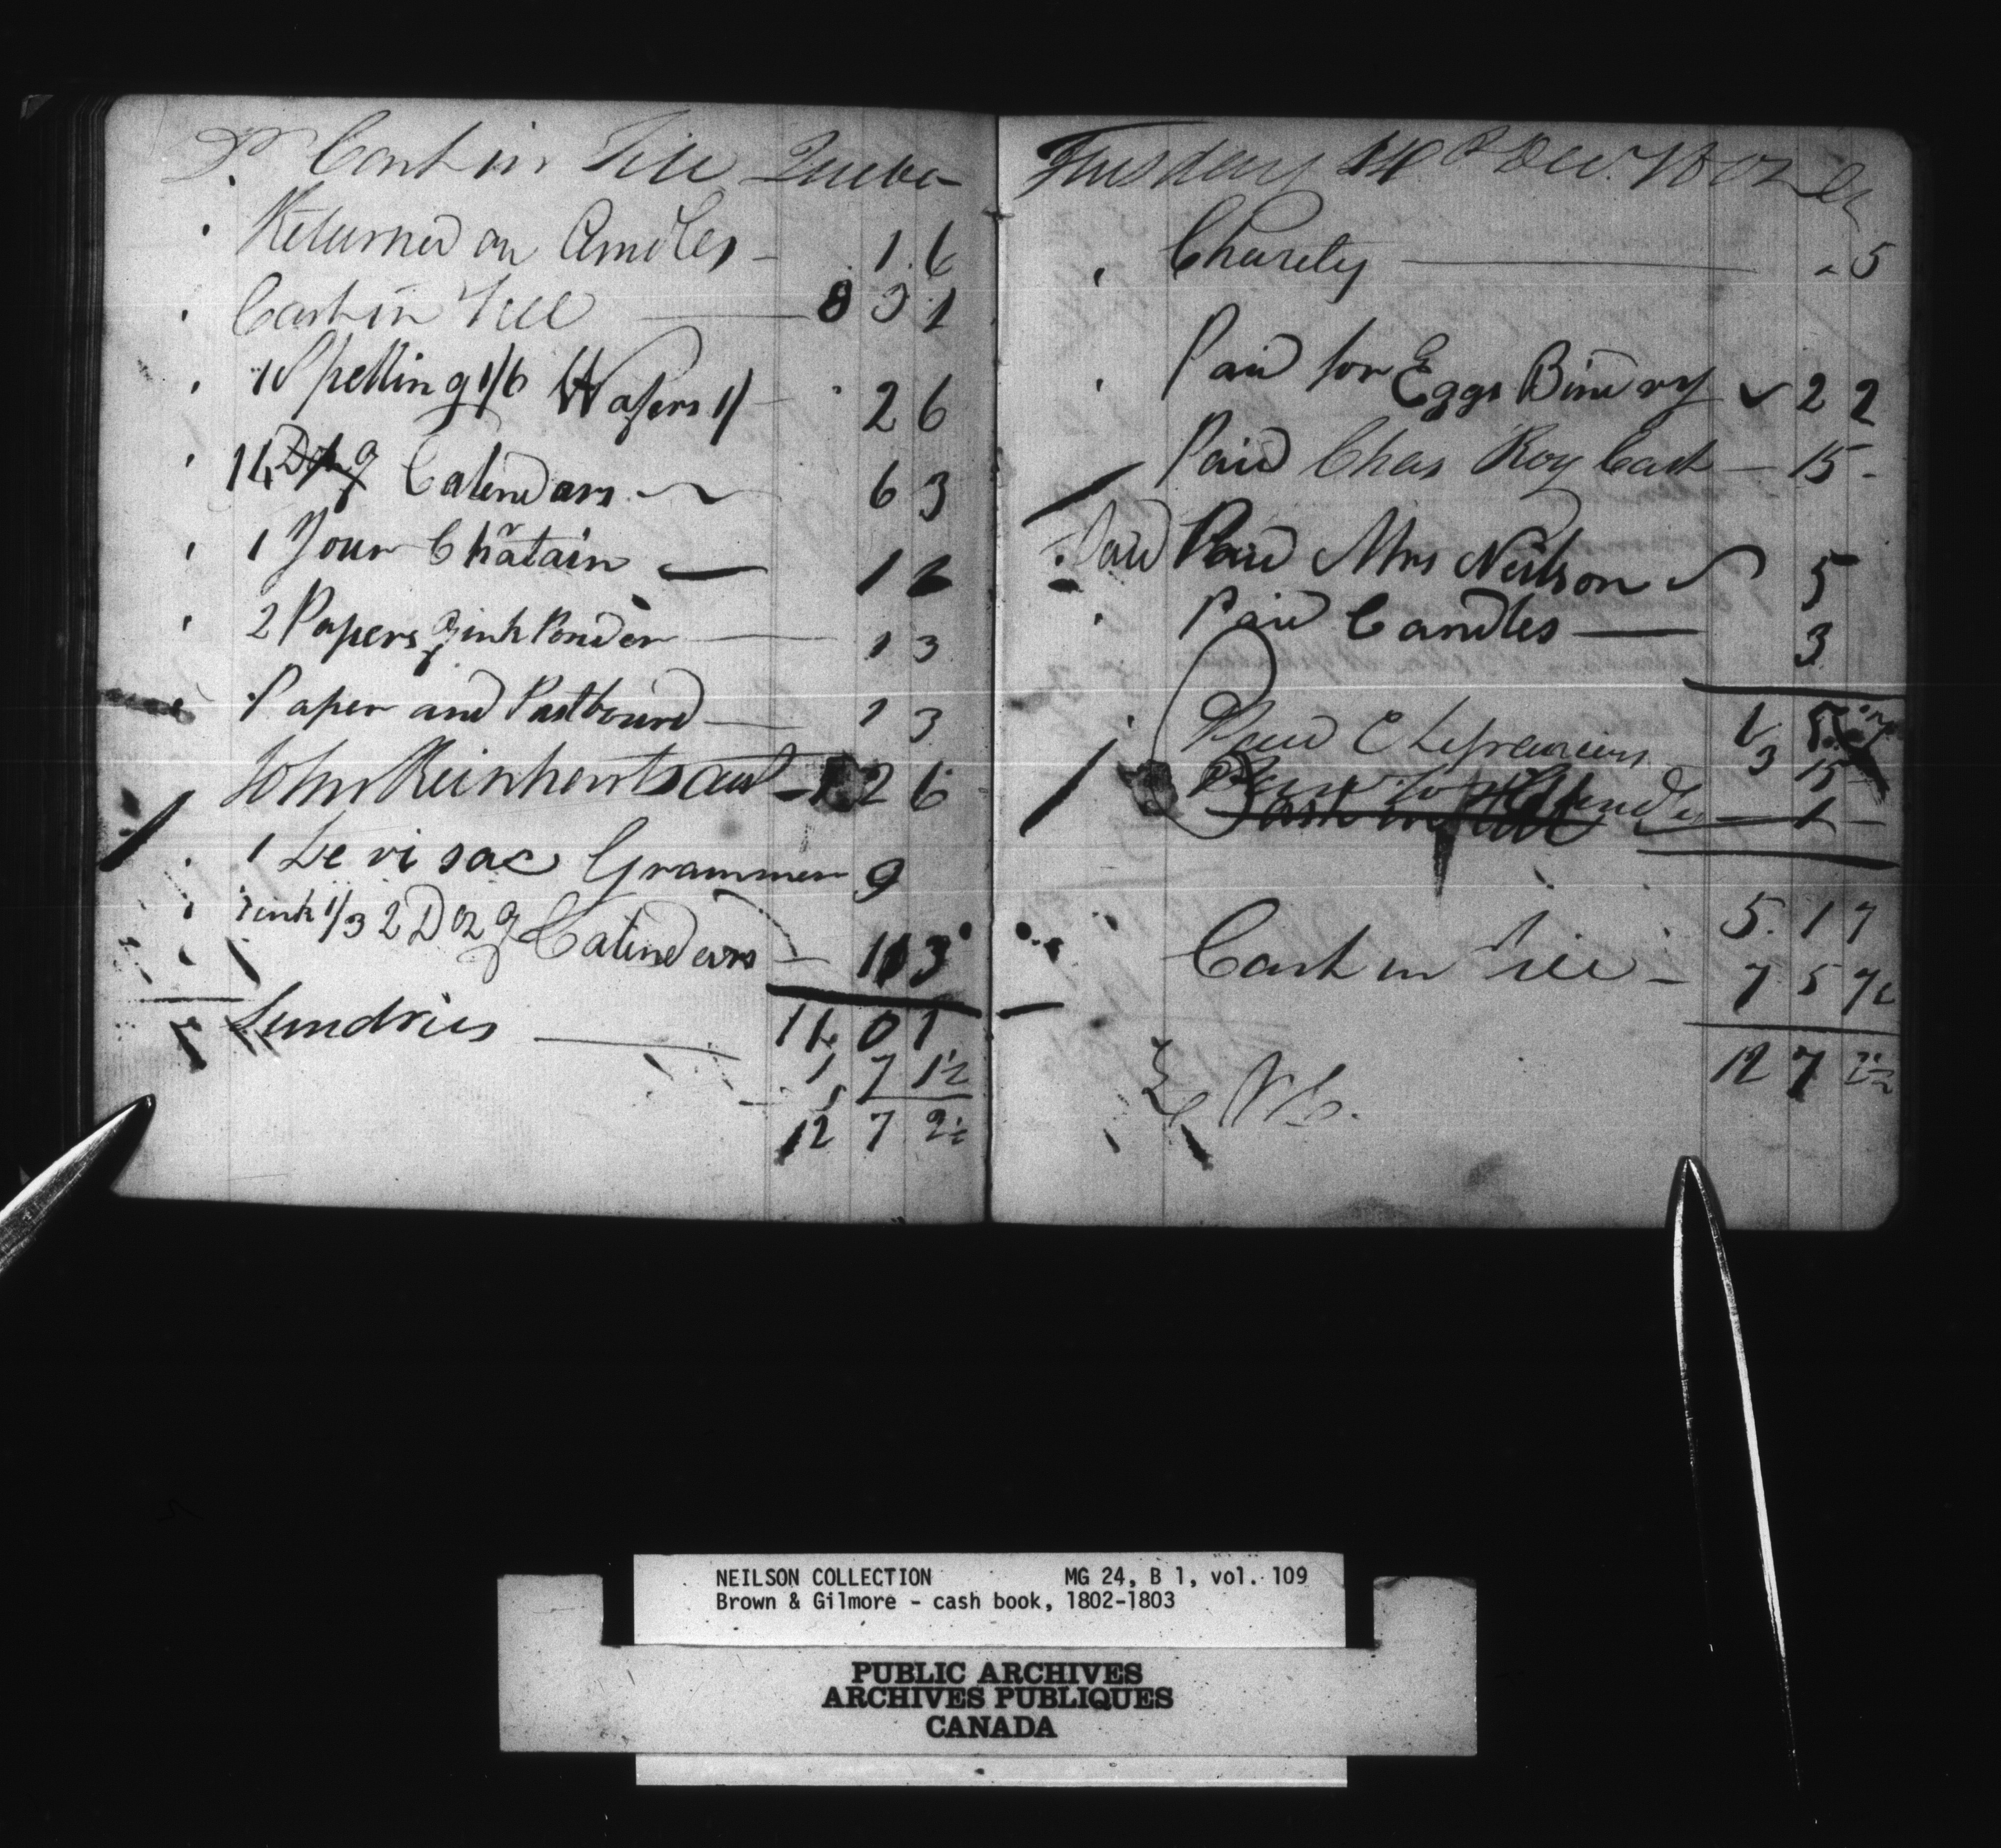 Dr Cash in Till Quebec
Returned on Candles - 1 6
Cash in Till 8 3 1
1 Spelling 1/6 Wafers 1/ 2 6
14 Calendars 6 3
1 Your Châtain 1 6
2 Papers Ink Powder 1 3
Paper and Pastbourd 1 3
John Reinhent 2 6
1 Levisac Grammer 9
ink 1/3 2 Doz Calendars 11 3
11 0 1
Sundries 1 7 1½
12 7 2½
Tuesday 14 Dec. 1802 Cr
Charity " 5
Paid for Eggs Bindery 2 2
Paid Chas Roy Cash 15 -
Paid Paid Mrs Neilson 5
Paid Candles 3
1 5
Paid C Lefrancois 3 15
1 -
5. 1 7
Cash in Till - 7 5 7½
12 7 2½
NEILSON COLLECTION MG 24, B 1, vol. 109
Brown & Gilmore - cash book, 1802-1803
PUBLIC ARCHIVES
ARCHIVES PUBLIQUES
CANADA